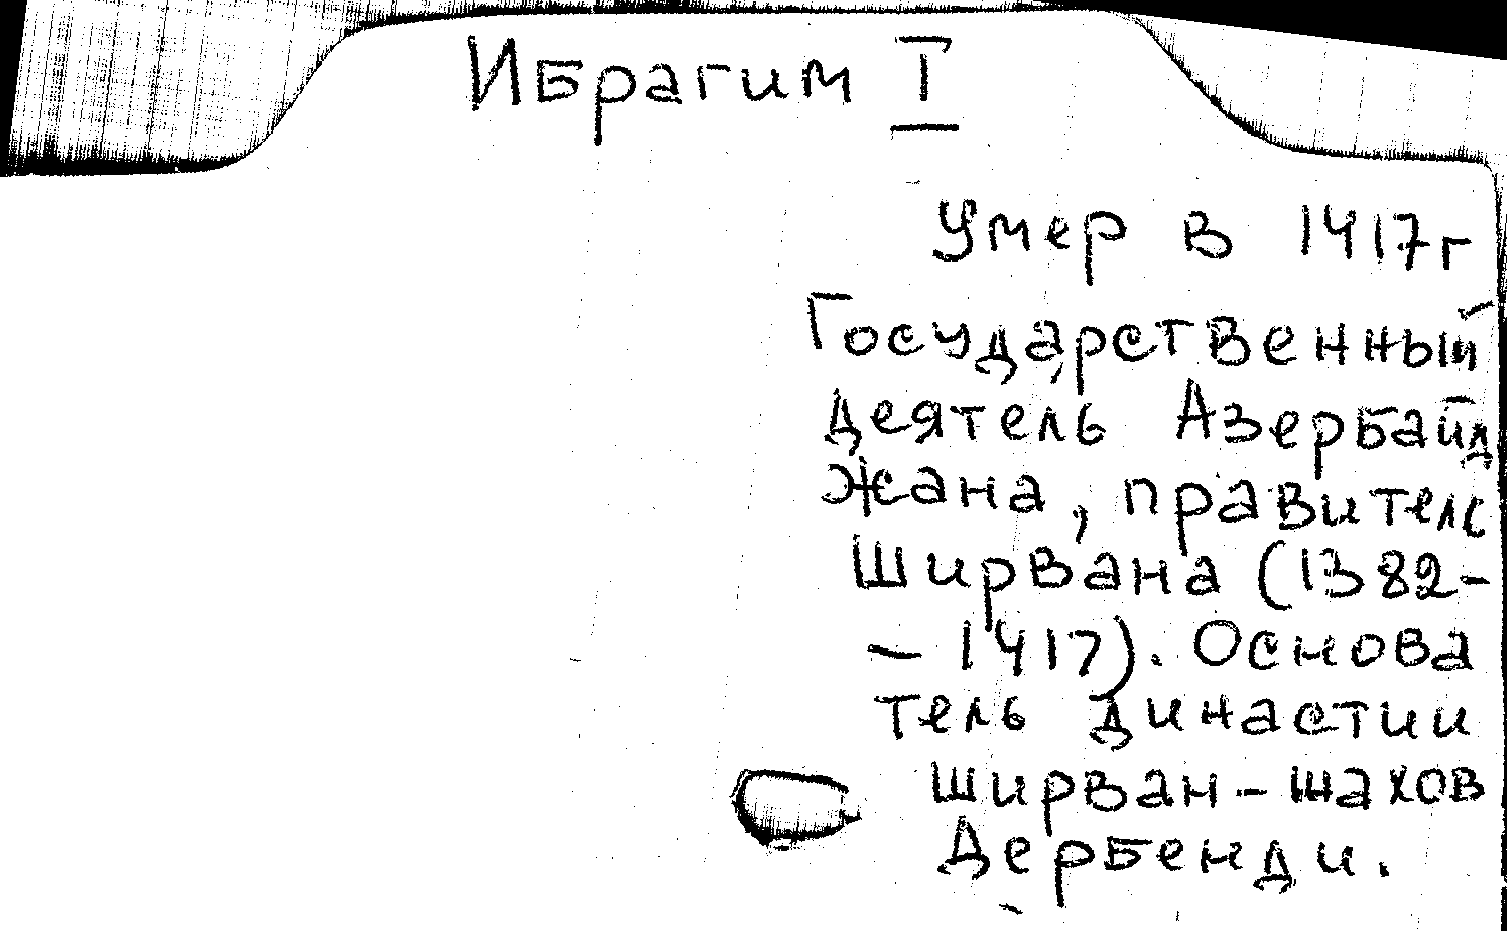 Ибрагим I
Умер в 1417г
Государственный
деятель Азербайд
жана, правитель
Ширвана (1382-
– 1417). Основа
тель династии
ширван-шахов
Дербенди.